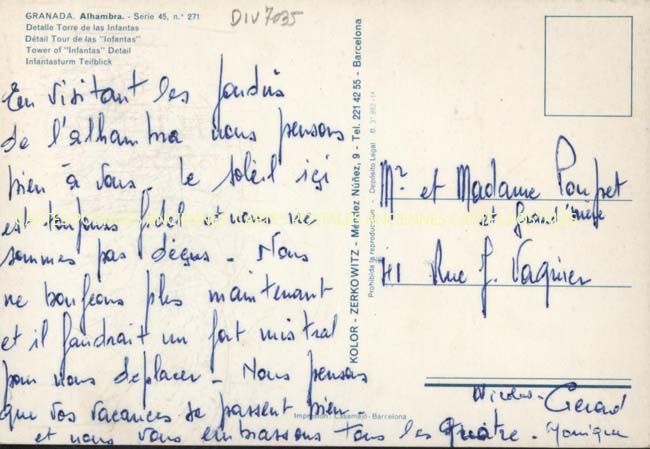 GRANADA. Alhambra. - Serie 45, n.° 271
Detalle Torre de las Infantas
Détail Tour de las "Infantas"
Tower of "Infantas" Detail
Infantasturm Teilblick
DIV7035
En visitant les jardins
de l'alhambra nous pensons
bien à vous - le soleil içi
est toujours fidel et nous ne
sommes pas déçus - Nous
ne bougeons plus maintenant
et il faudrait un fort mistral
pour nous deplacer - Nous pensons
que vos vacances se passent bien -
et nous vous embrassons tous les Quatre -
Nicolas - Gerard
Monique
KOLOR - ZERKOWITZ - Méndez Núñez, 9 - Tel. 221 42 55 - Barcelona
Prohibida la reproducción - Depósito Legal B. 31 982-14
Mr et Madame Poufret
et Grand'mère
41 Rue J. Vaquier
Impresión: Casamajó-Barcelona